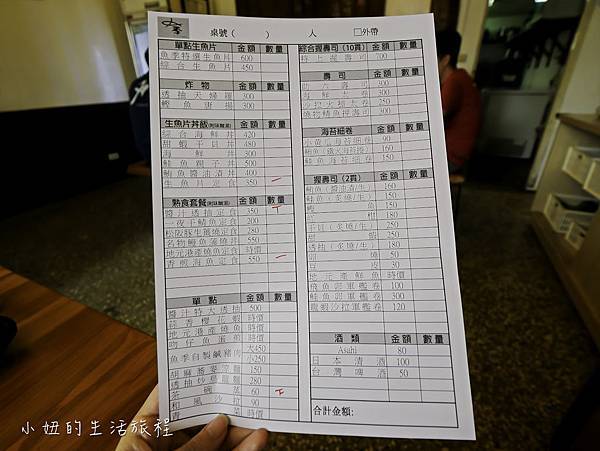 桌號( ) 人 □外帶
單點生魚片 金額 數量
魚季特選生魚片 600
綜合生魚片 450
炸物 金額 數量
透抽天婦羅 300
鰹魚唐揚 300
生魚片丼飯(附味噌湯) 金額 數量
綜合海鮮丼 420
甜蝦干貝丼 480
海鮮丼 300
鮭魚親子丼 500
鮪魚醬油漬丼 400
生魚片定食 350
熟食套餐(附味噌湯) 金額 數量
醬汁透抽定食 350
一夜干鯖魚定食 200
松阪豚生薑燒定食 280
名物鰻魚蒲燒丼 550
地元港產燒魚定食 時價
香煎海魚定食 550
單點 金額 數量
醬汁特大透抽 500
蒜香櫻花蝦 時價
地元港產燒魚 時價
吻仔魚 時價
魚季自製鹹豬肉 大450
小250
胡麻蕎麥涼麵 150
透抽炒烏龍麵 280
茶碗蒸 60
和風沙拉 90
菜 時價
綜合握壽司(10貫) 金額 數量
特上握壽司 700
壽司 金額 數量
300
海鮮太卷 300
沙拉水果太卷 250
燒物鯖魚押壽司 300
海苔細卷 金額 數量
小黃瓜海苔細卷 90
鮪魚(鐵火海苔捲) 160
鮭魚海苔細卷 150
握壽司(2貫) 金額 數量
鮪魚(醬油漬/生) 160
鮭魚(炙燒/生) 150
魚 150
魽 180
干貝(炙燒/生) 200
甜蝦 250
透抽(炙燒/生) 180
燒 50
豆皮 30
地元產鮮魚 時價
飛魚卵軍艦卷 100
鮭魚卵軍艦卷 300
龍蝦沙拉軍艦卷 120
酒類 金額 數量
Asahi 80
日本清酒 100
台灣啤酒 50
合計金額:
小妞的生活旅程